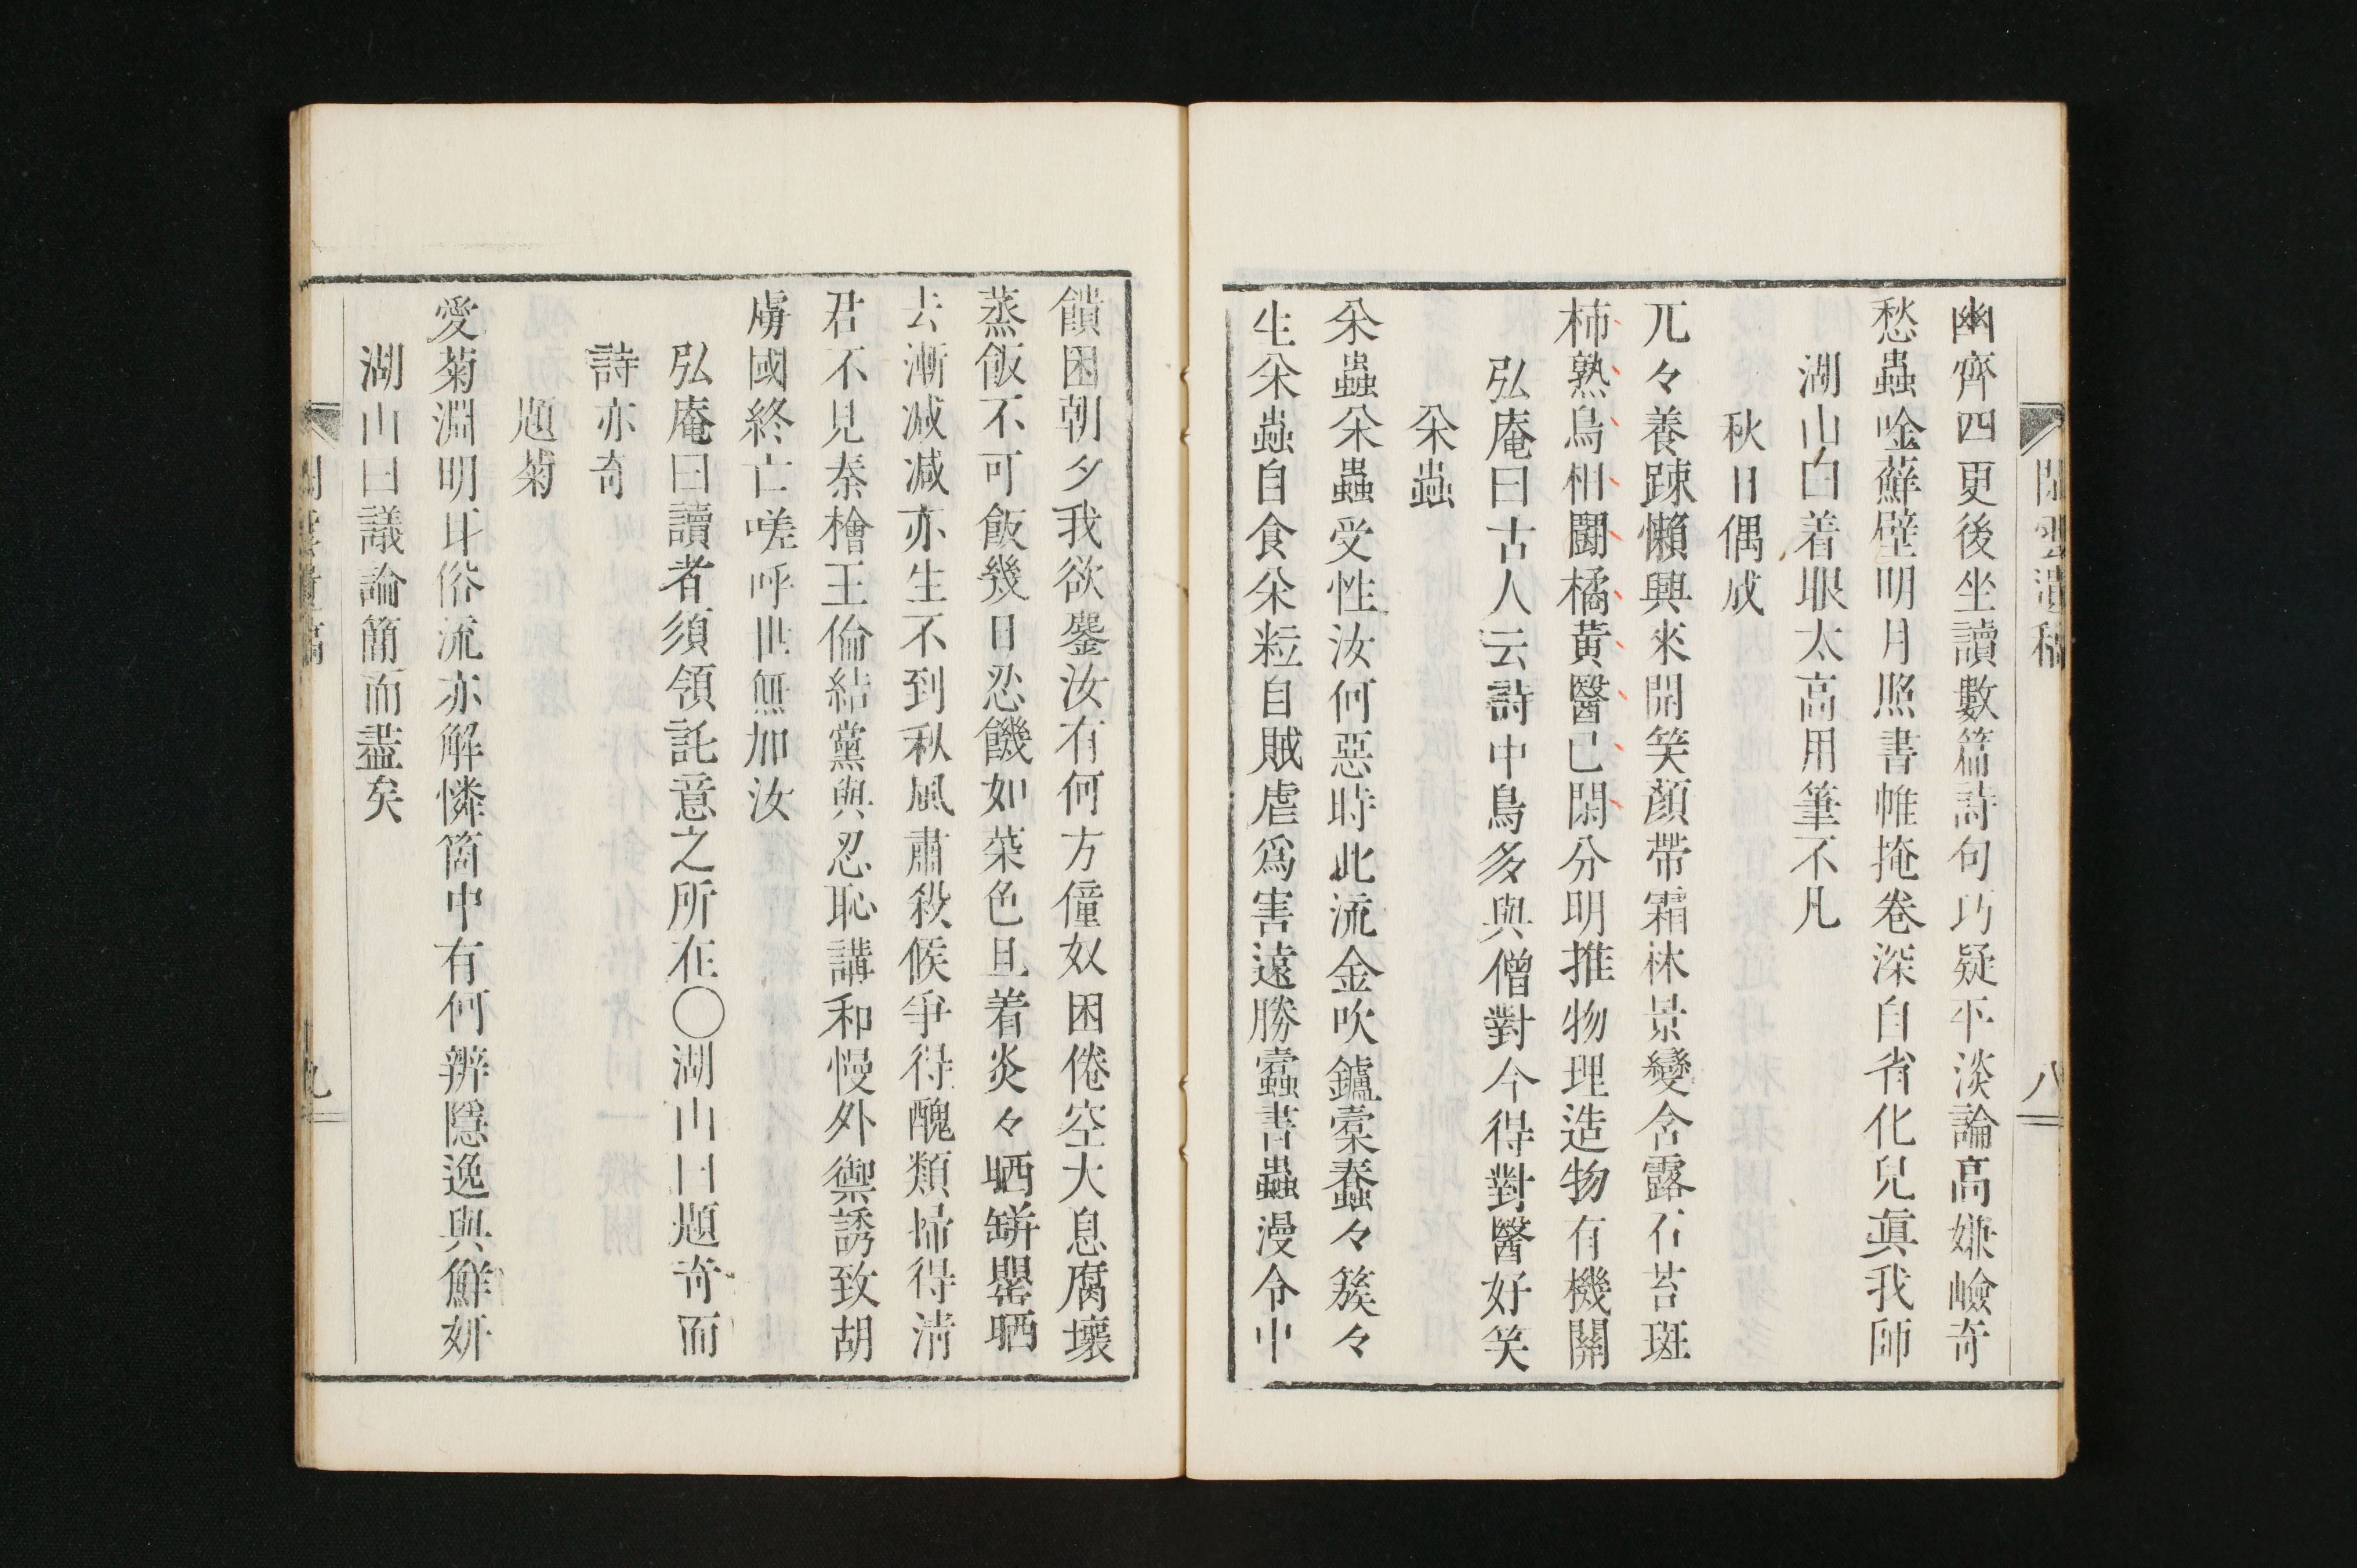 幽齊四更後坐讀數篇詩句巧疑平淡論高嫌嶮奇
愁蟲唫蘚壁明月照書帷掩卷深自省化兒眞我師
湖山曰着眼太高用筆不凡
秋日偶成
兀々養踈懶興來開笑顏帶霜林景變含露石苔斑
柿熟鳥相鬪橘黃醫已閑分明推物理造物有機關
弘庵曰古人云詩中鳥多與僧對今得對醫好笑
籴蟲
籴蟲籴蟲受性汝何惡時此流金吹鑪槖蠢々簇々
生籴蟲自食籴粒自賊虐爲害遠勝蠧書蟲漫令中
饋困朝夕我欲鏖汝有何方僮奴困倦空大息腐壤
蒸飯不可飯幾日忍饑如菜色且着炎々晒缾罌晒
去漸减减亦生不到秋風肅殺候爭得醜類掃得淸
君不見秦檜王倫結黨與忍恥講和慢外禦誘致胡
虜國終亡嗟呼世無加汝
弘庵曰讀者須領託意之所在〇湖山曰題奇而
詩亦奇
題菊
愛菊淵明耳俗流亦解憐箇中有何辨隱逸與鮮妍
湖山曰議論簡而盡矣